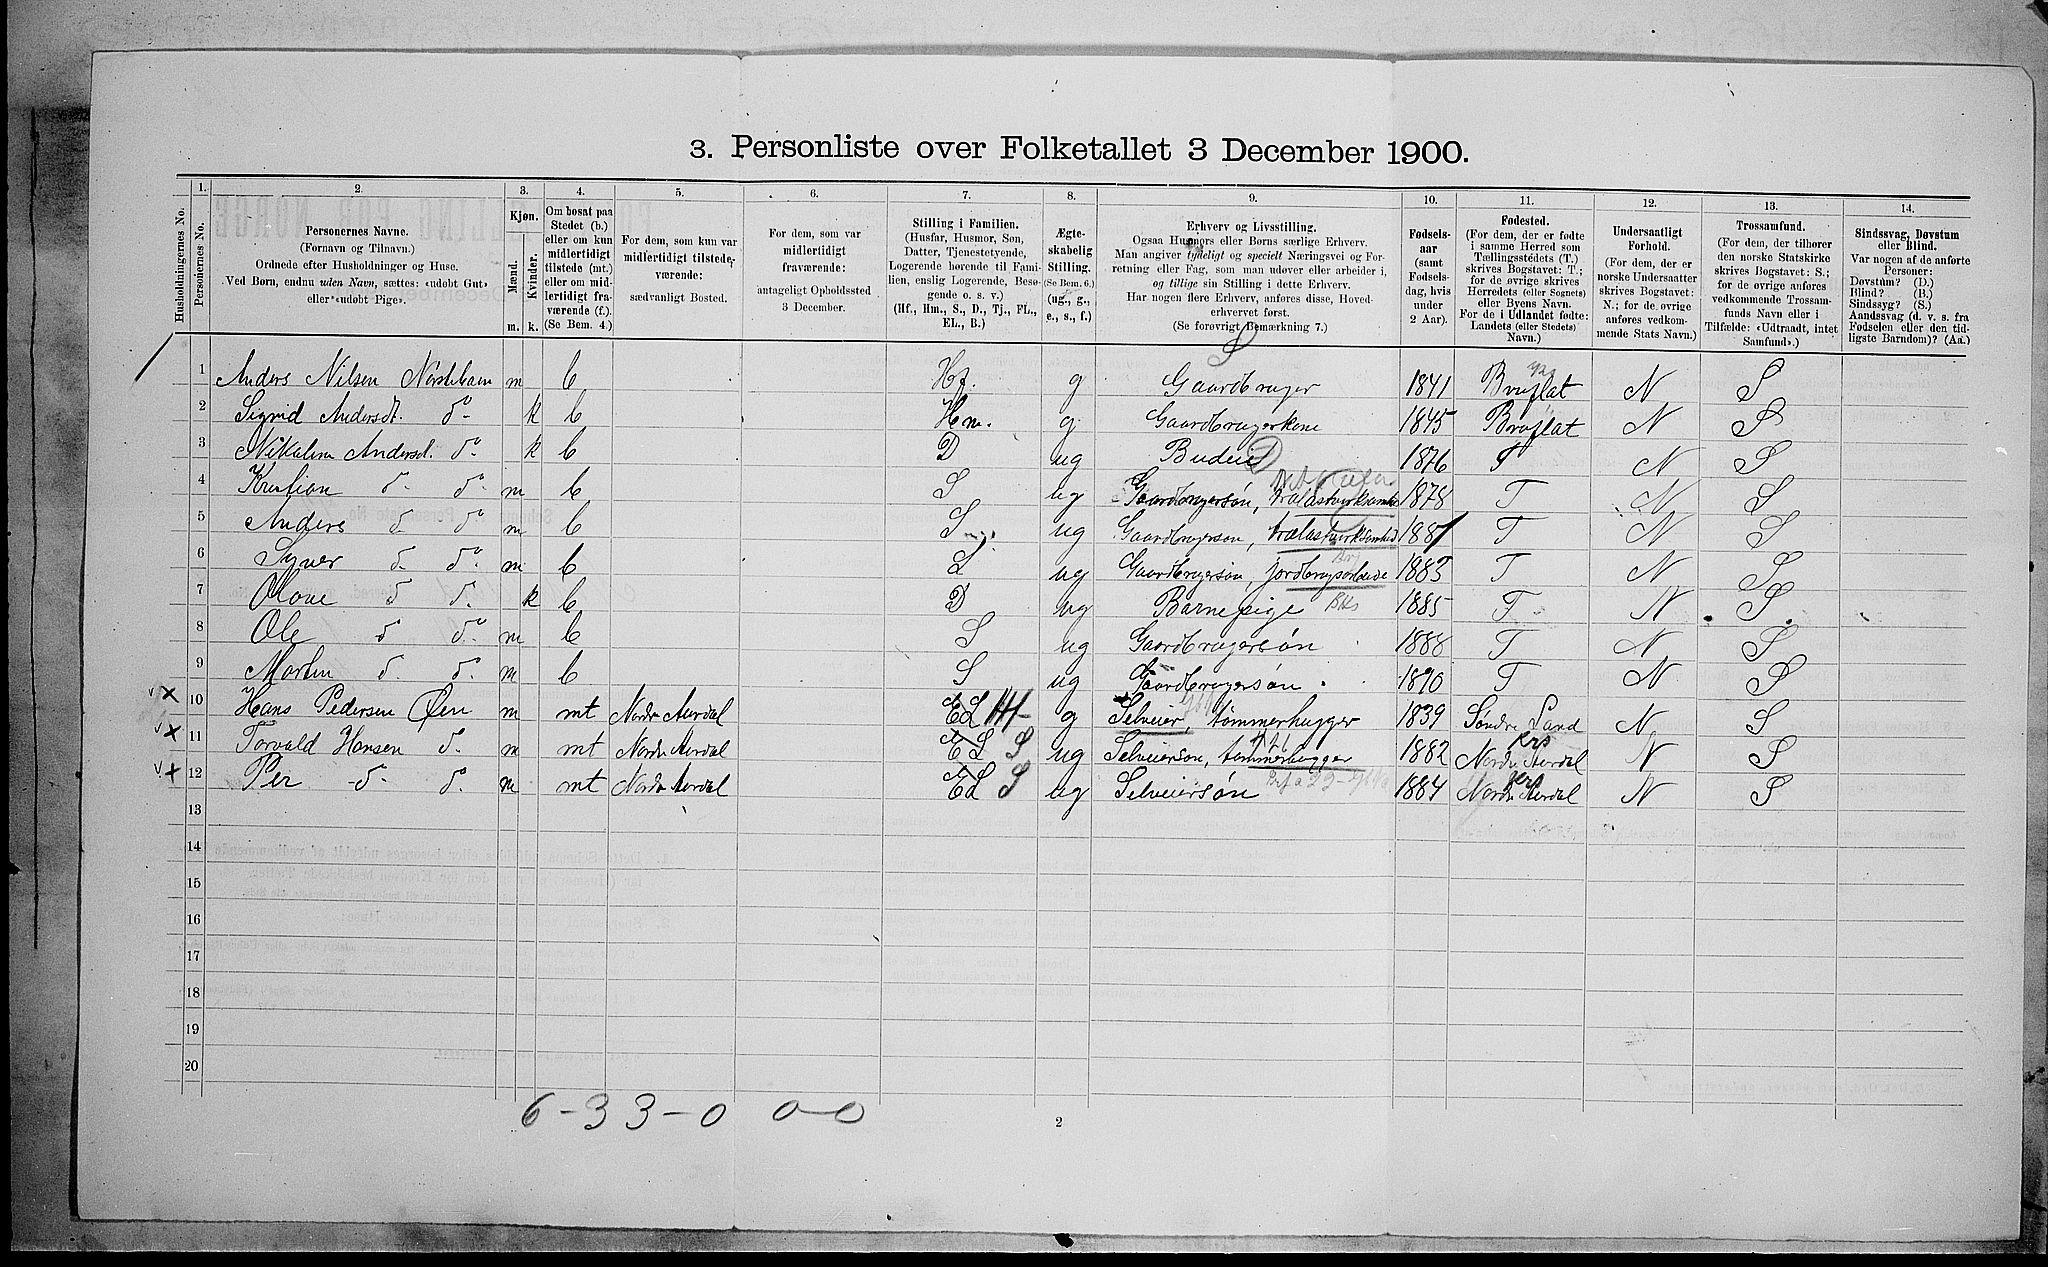 3. Personliste over Folketallet 3 December 1900.
1. 2. 3. 4. 5. 6. 7. 8. 9. 10. 11. 12. 13. 14.
Husholdningernes No.
Personernes No.
Personernes Navne.
(Fornavn og Tilnavn.)
Ordnede efter Husholdninger og Huse.
Ved Børn, endnu uden Navn, sættes: «udøbt Gut»
eller «udøbt Pige».
Kjøn.
Mænd. Kvinder.
m. k.
Om bosat paa
Stedet (b.)
eller om kun
midlertidigt
tilstede (mt.)
eller om mid-
lertidigt fra-
værende (f.).
(Se Bem. 4.)
For dem, som kun var
midlertidigt tilstede-
værende:
sædvanligt Bosted.
For dem, som var
midlertidigt
fraværende:
antageligt Opholdssted
3 December.
Stilling i Familien.
(Husfar, Husmor, Søn,
Datter, Tjenestetyende,
Logerende hørende til Fami-
lien, enslig Logerende, Besø-
gende o. s. v.)
(Hf., Hm., S., D., Tj., FL.,
EL., B.)
Ægte-
skabelig
Stilling.
(Se Bem. 6.)
(ug., g.,
e., s., f.)
Erhverv og Livsstilling.
Ogsaa Husmors eller Børns særlige Erhverv.
Man angiver tydeligt og specielt Næringsvei og For-
retning eller Fag, som man udøver eller arbeider i,
og tillige sin Stilling i dette Erhverv.
Har nogen flere Erhverv, anføres disse, Hoved-
erhvervet først.
(Se forøvrigt Bemærkning 7.)
Fødsels-
aar
(samt
Fødsels-
dag, hvis
under
2 Aar).
Fødested.
(For dem, der er fødte
i samme Herred som
Tællingsstedets (T.)
skrives Bogstavet: T.;
for de øvrige skrives
Herredets (eller Sognets)
eller Byens Navn.
For de i Udlandet fødte:
Landets (eller Stedets)
Navn.)
Undersaatligt
Forhold.
(For dem, der er
norske Undersaatter
skrives Bogstavet:
N.; for de øvrige
anføres vedkom-
mende Stats Navn.)
Trossamfund.
(For dem, der tilhører
den norske Statskirke
skrives Bogstavet: S.;
for de øvrige anføres
vedkommende Trossam-
funds Navn eller i
Tilfælde: «Udtraadt, intet
Samfund».)
Sindssvag, Døvstum
eller Blind.
Var nogen af de anførte
Personer:
Døvstum? (D.)
Blind? (B.)
Sindssyg? (S.)
Aandssvag (d. v. s. fra
Fødselen eller den tid-
ligste Barndom)? (Aa.)
1 Anders Nilsen m b Hf. g Gaardbruger 1841 Bruflat N S
2 Sigrid Andersdt. do k b Hm. g. Gaardbrugerkone 1845 Bruflat N S
3 Nikoline Andersd. do k b D ug Budeie 1876 T N S
4 Kristian do do m b S ug Gaardbrugersøn, 1878 T N S
5 Anders do do m b S ug Gaardbrugersøn, trælastvirksomhed 1881 T N S
6 Syver do do m b S ug Gaardbrugersøn, 1883 T N S
7 do do k b D ug Barnepige 1885 T N S
8 Ole do do m b S ug Gaardbrugersøn 1888 T N S
9 Morten do do m b S ug Gaardbrugersøn 1890 T N S
10 Hans Pedersen Øen m mt Nordre Aurdal EL g Selveier, tømmerhugger 1839 Søndre Land N S
11 Torvald Hansen do m mt Nordre Aurdal EL S ug Selveiersøn, tømmerhugger 1882 Nordre Aurdal N S
12 Per do do m mt Nordre Aurdal EL S ug Selveiersøn 1884 Nordre Aurdal N S
13
14
15
16
17
18
19
20
6-3 3-0 0-0
2